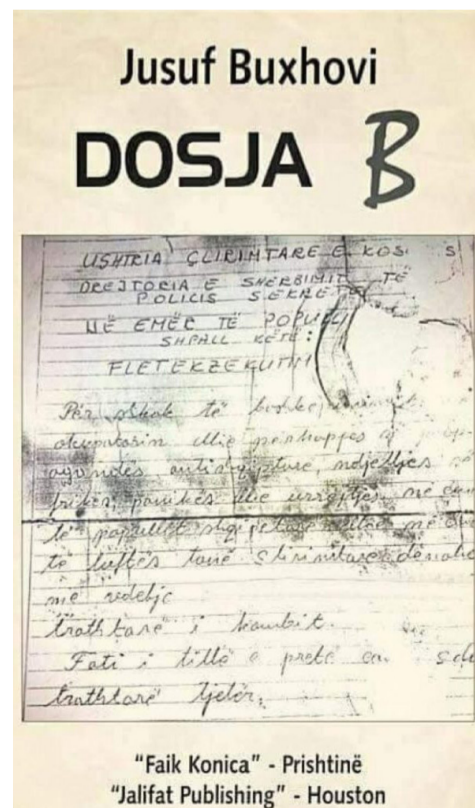 Jusuf Buxhovi
DOSJA B
USHTRIA ÇLIRIMTARE E KOS S
DREJTORIA E SHERBIMIT TË
POLICIS SEKRE
NË EMËR TË POPULLI
SHPALL KËTË:
FLETEKZEKUTIM
Për shkak të
okupatorin dhe përhapjes
antishqiptare, ndjelljes
frikës, panikës dhe urrejtjes në
të popullit shqiptare në
të luftës tonë
me vdekje
trathtarë i kombit.
Fati i tillë e pretë
trathtarë tjetër.
"Faik Konica" - Prishtinë
"Jalifat Publishing" - Houston